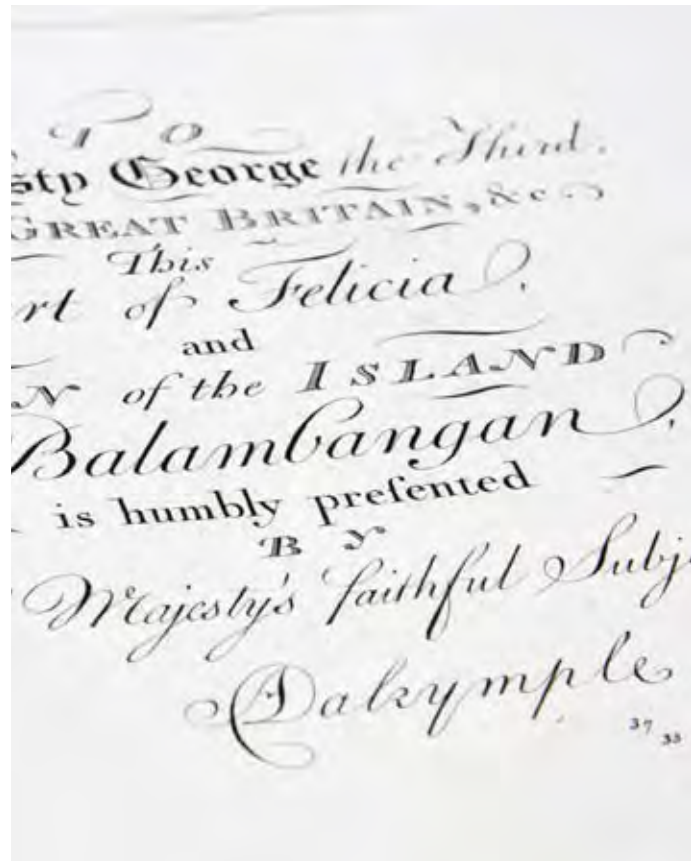 TO
sty George the Third.
GREAT BRITAIN, &c.
This
rt of Felicia,
and
N of the ISLAND
Balambangan,
is humbly preſented
BY
Majesty's faithful Subj
Dalrymple
37